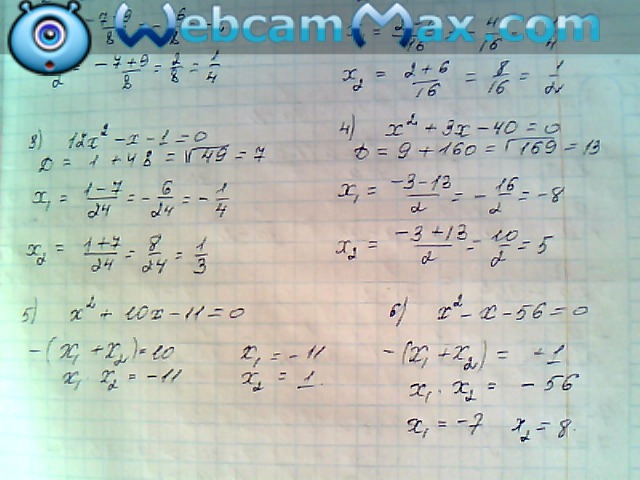 WebcamMax.com
x₂ = (2+6)/16 = 8/16 = 1/2
2 = (-7+9)/8 = 2/8 = 1/4
3) 12x² - x - 1 = 0
D = 1 + 48 = √49 = 7
x₁ = (1-7)/24 = -6/24 = -1/4
x₂ = (1+7)/24 = 8/24 = 1/3
4) x² + 3x - 40 = 0
D = 9 + 160 = √169 = 13
x₁ = (-3-13)/2 = -16/2 = -8
x₂ = (-3+13)/2 = 10/2 = 5
5) x² + 10x - 11 = 0
-(x₁ + x₂) = 10 x₁ = -11
x₁ · x₂ = -11 x₂ = 1.
6) x² - x - 56 = 0
-(x₁ + x₂) = +1
x₁ · x₂ = -56
x₁ = -7 x₂ = 8.